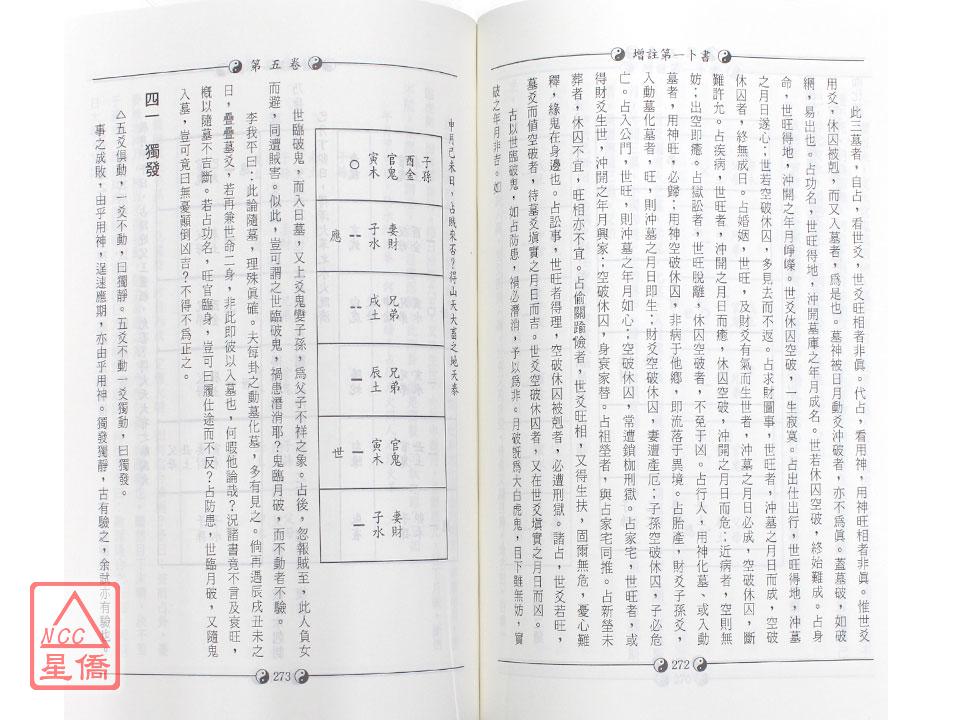 增註第一卜書
此三墓者，自占，看世爻，世爻旺相者非眞。代占，看用神，用神旺相者非眞。惟世爻
用爻，休囚被剋，而又入墓者，爲是也。墓神被日月動爻沖破者，亦不爲眞。蓋墓破，如破
網，易出也。占功名，世旺得地，沖開墓庫之年月成名。世若休囚空破，終始難成。占身
命，世旺得地，沖開之年月崢嶸。世爻休囚空破，一生寂寞。占出仕出行，世旺得地，沖墓
之月日遂心；世若空破休囚，多見去而不返。占求財圖事，世旺者，沖墓之月日而成，空破
休囚者，終無成日。占婚姻，世旺，及財爻有氣而生世者，沖墓之月日必成，空破休囚，斷
難許允。占疾病，世旺者，沖開之月日而癒，休囚空破，沖開之月日而危；近病者，空則無
妨；出空即癒。占獄訟者，世旺脫離，休囚空破者，不免于凶。占行人，用神化墓、或入動
墓者，用神旺，必歸；用神空破休囚，非病于他鄉，即流落于異境。占胎產，財爻子孫爻，
入動墓化墓者，旺，則沖墓之月日即生；財爻空破休囚，妻遭產厄；子孫空破休囚，子必危
亡。占入公門，世旺，則沖墓之年月如心；空破休囚，常遭鎖枷刑獄。占家宅，世旺者，或
得財爻生世，沖開之年月興家；空破休囚，身衰家替。占祖塋者，與占家宅同推。占新塋未
葬者，休囚不宜，旺相亦不宜。占偷關踰儉者，世爻旺相，又得生扶，固爾無危，憂心難
釋，緣鬼在身邊也。占訟事，世旺者得理，空破休囚被剋者，必遭刑獄。諸占，世爻若旺，
墓爻而值空破者，待墓爻塡實之月日而吉。世爻空破休囚者，又在世爻塡實之月日而凶。
古以世臨破鬼，如占防患，禍必潛消，予以爲非。月破旣爲大白虎鬼，目下雖無妨，實
破之年月非吉。如
272
第五卷
申月己未日，占賊來否？得山天大畜之地天泰
子孫
酉金
官鬼
寅木
○
妻財
子水
--
應
兄弟
戌土
--
兄弟
辰土
官鬼
寅木
世
妻財
子水
世臨破鬼，而入日墓，又上爻鬼變子孫，爲父子不祥之象。占後，忽報賊至，此人負女
而避，同遭賊害。似此，豈可謂之世臨破鬼，禍患潛消耶？鬼臨月破，而不動者不驗。
李我平曰：此論隨墓，理殊眞確。夫每卦之動墓化墓，多有見之。倘再遇辰戌丑未之
日，疊疊墓爻，若再兼世命二身，非此即彼以入墓也，何暇他論哉？況諸書竟不言及衰旺，
槪以隨墓不吉斷。若占功名，旺官臨身，豈可曰履仕途而不反？占防患，世臨月破，又隨鬼
入墓，豈可竟曰無憂顚倒凶吉？不得不爲正之。
四一　獨發
△五爻俱動，一爻不動，曰獨靜。五爻不動一爻獨動，曰獨發。
事之成敗，由乎用神，逞速應期，亦由乎用神。獨發獨靜，古有驗之，余試亦有驗也。
273
NCC
星僑